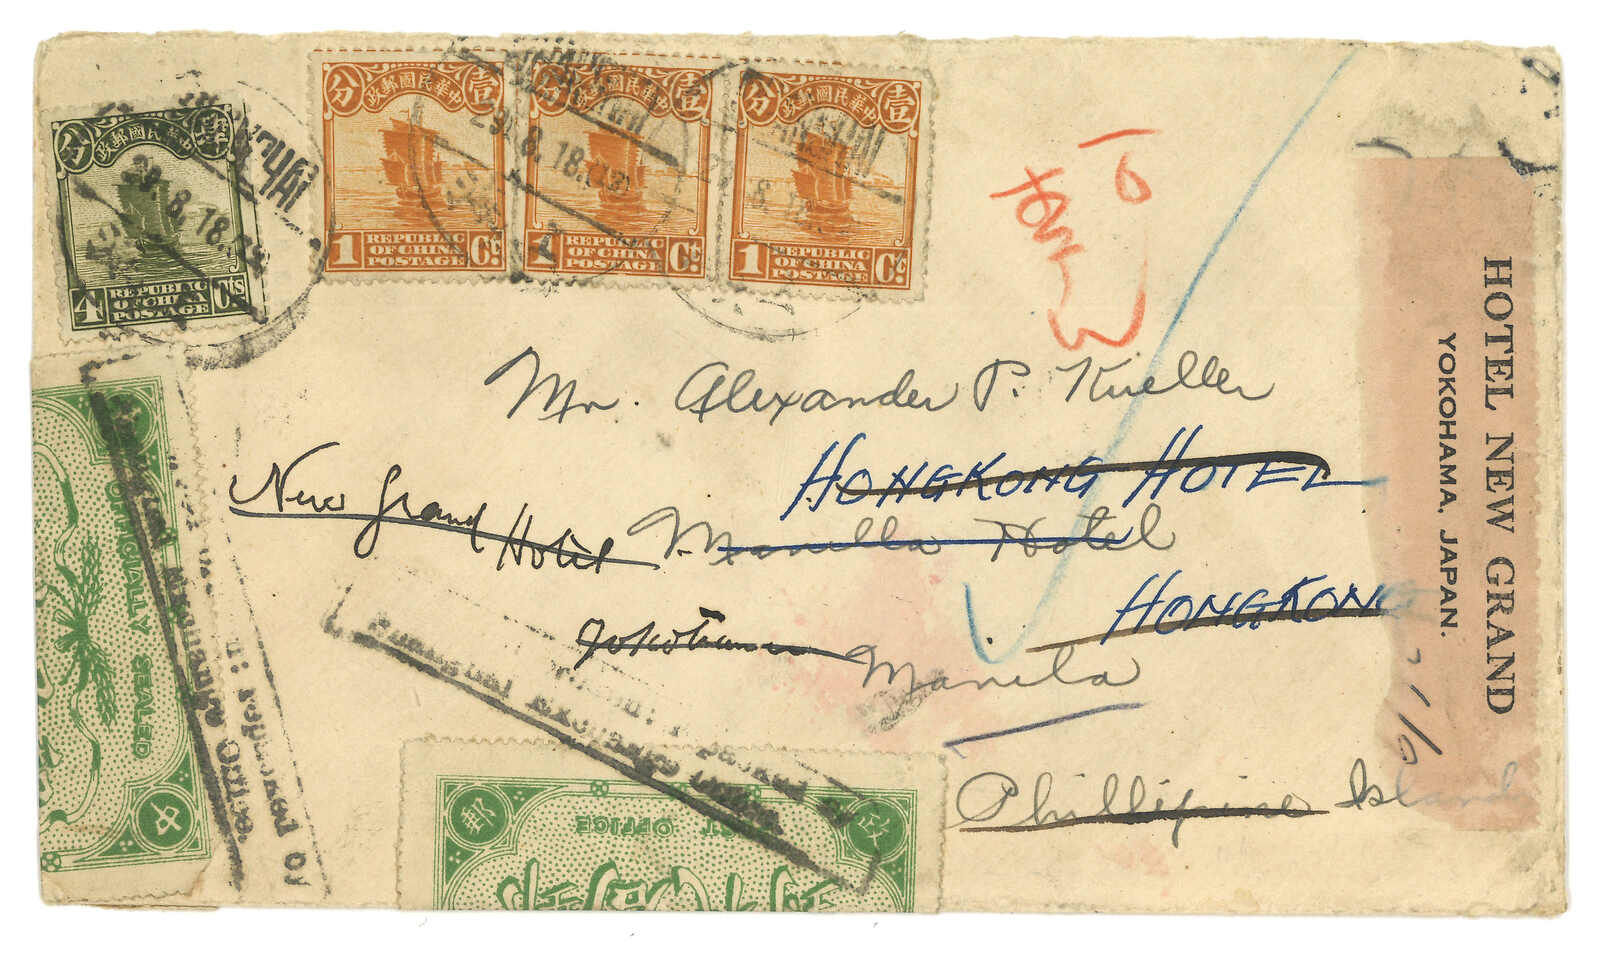 中華民國郵政
分
4 REPUBLIC OF CHINA POSTAGE Cts
29.8.18
壹 中華民國郵政 分
1 REPUBLIC OF CHINA POSTAGE Ct.
壹 中華民國郵政 分
1 REPUBLIC OF CHINA POSTAGE Ct.
壹 中華民國郵政 分
1 REPUBLIC OF CHINA POSTAGE Ct.
29.8.18.(13)
Mr. Alexander P. Kueller
HONGKONG HOTEL
New Grand Hotel
Manilla Hotel
HONGKONG
Yokohama
Manila
Phillipine Islands
HOTEL NEW GRAND
YOKOHAMA, JAPAN.
OFFICIALLY SEALED
中
郵
政
POST OFFICE